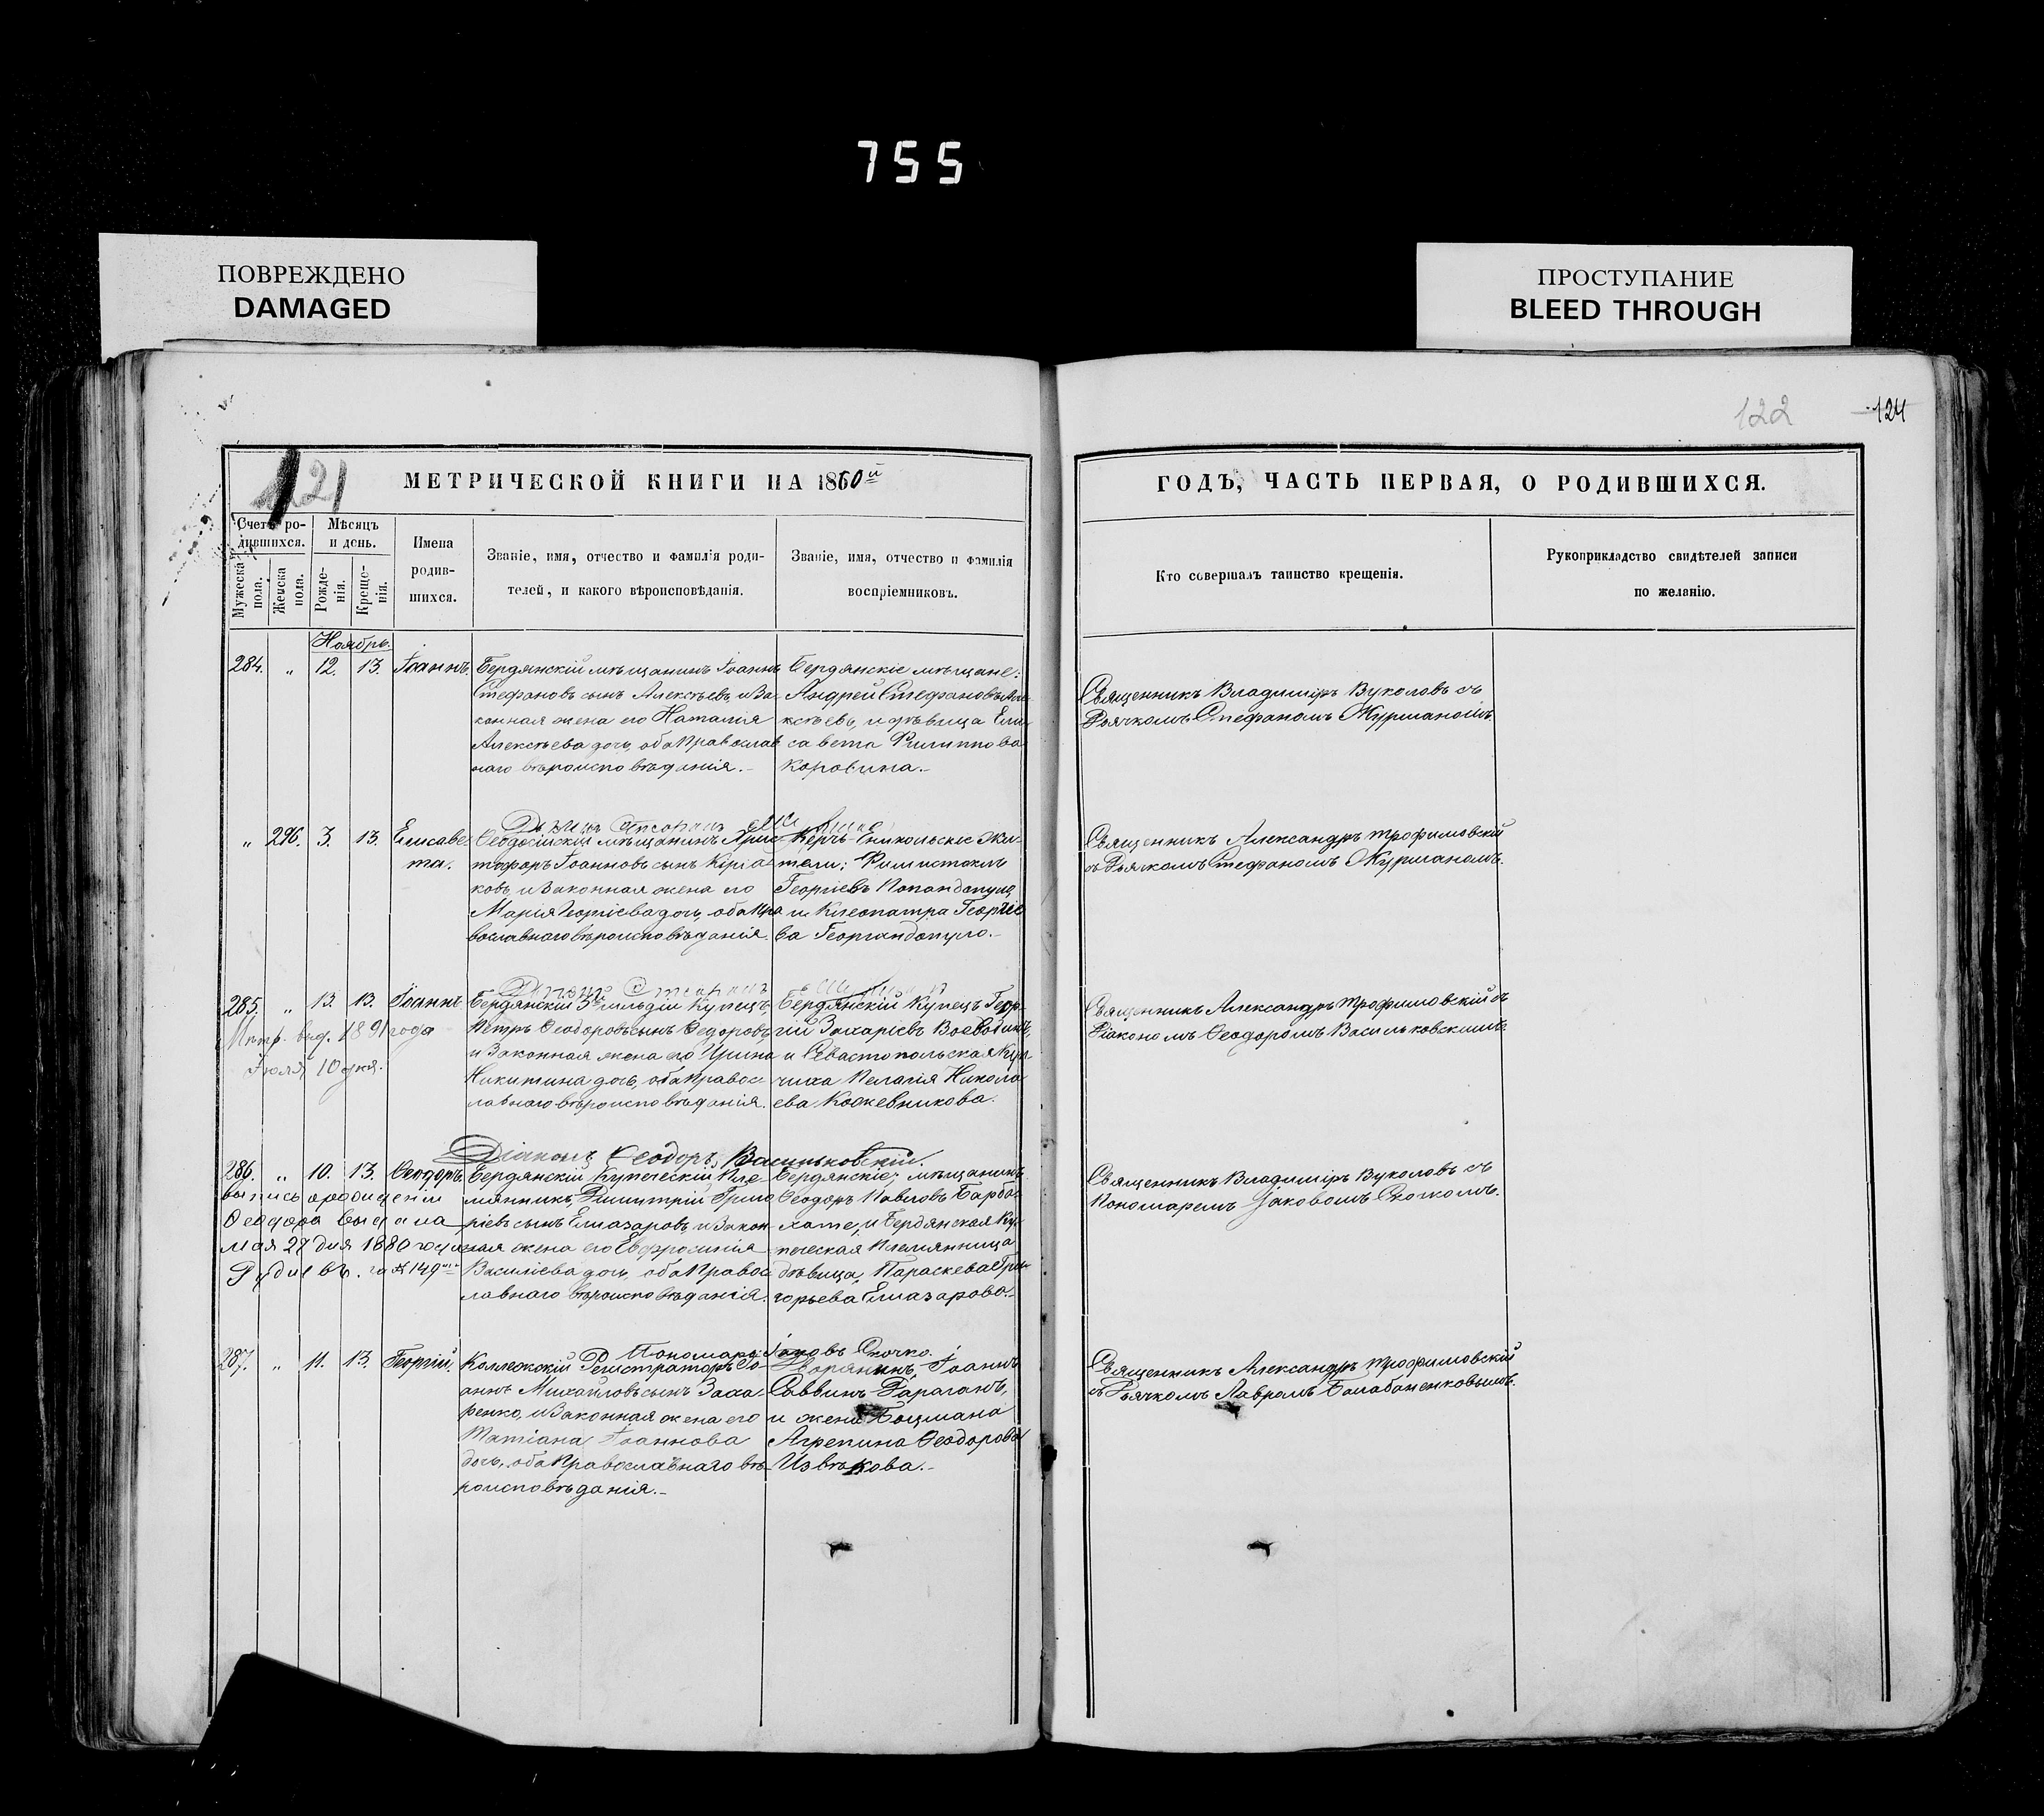 755
ПОВРЕЖДЕНО
DAMAGED
ПРОСТУПАНИЕ
BLEED THROUGH
122
124
121
МЕТРИЧЕСКОЙ КНИГИ НА 1860й
Счетъ ро-
дившихся.
Мужеска
пола.
Женска
пола.
Мѣсяцъ
и день.
Рожде-
нія.
Креще-
нія.
Имена
родив-
шихся.
Званіе, имя, отчество и фамилія роди-
телей, и какого вѣроисповѣданія.
Званіе, имя, отчество и фамилія
воспріемниковъ.
ГОДЪ, ЧАСТЬ ПЕРВАЯ, О РОДИВШИХСЯ.
Кто совершалъ таинство крещенія.
Рукоприкладство свидѣтелей записи
по желанію.
Ноябрь.
284. „ 12. 13. Іоаннъ.
Бердянскій мѣщанинъ Іоаннъ
Стефановъ сынъ Алексѣевъ, и за-
конная жена его Наталія
Алексѣева дочь, оба Православ
наго вѣроисповѣданія.-
Бердянскіе мѣщане:
Андрей Стефановъ Але
ксѣевъ, и дѣвица Ели
савета Филиппова
Коровина.-
Священникъ Владиміръ Вуколовъ съ
Дьячкомъ Стефаномъ Журманомъ.
„ 296. 3. 13. Елисаве
та.
Ѳеодосійскій мѣщанинъ Хрис
тофоръ Іоанновъ сынъ Киріа
ковъ, и законная жена его
Марія Георгіева дочь, оба Пра
вославнаго вѣроисповѣданія.
Керчь-Еникольскіе Жи-
тели: Филистокль
Георгіевъ Попандопуло,
и Клеопатра Георгіе
ва Георгандопуло.-
Священникъ Александръ Трофимовскій
съ Дьячкомъ Стефаномъ Журманомъ.
285. „ 13. 13. Іоаннъ
Метр. выд. 1891 года
Іюля 10 дня.
Бердянскій 3й гильдіи Купецъ,
Петръ Ѳеодоровъ сынъ Ѳедоровъ,
и Законная жена его Ирина
Никитина дочь, оба Правос
лавнаго вѣроисповѣданія.
Бердянскій Купецъ Геор-
гій Захаріевъ Воеводинъ,
и Севастопольская Куп
чиха Пелагія Никола
ева Кожевникова.
Священникъ Александръ Трофимовскій съ
Діакономъ Ѳеодоромъ Васильковскимъ.
Діаконъ Ѳеодоръ Васильковскій.
286. „ 10. 13. Ѳеодоръ.
Выпись о рожденіи
Ѳеодора выдана
мая 27 дня 1880 года
за № 149
Бердянскій Купеческій Пле-
мянникъ, Димитрій Григо
ріевъ сынъ Елиазаровъ, и Закон-
ная жена его Евфросинія
Василіева дочь, оба Правос
лавнаго вѣроисповѣданія.
Бердянскіе: мѣщанинъ
Ѳеодоръ Павловъ Барба-
хате, и Бердянская Ку-
печеская Племянница
дѣвица, Параскева Гри-
горьева Елиазарова.-
Священникъ Владиміръ Вуколовъ съ
Пономаремъ Іаковомъ Сточкомъ.
Пономарь Іаковъ Сточко.
287. „ 11. 13. Георгій.
Коллежскій Регистраторъ Іо-
аннъ Михайловъ сынъ Заха-
ренко, и Законная жена его
Татіана Іоаннова
дочь, оба Православнаго вѣ-
роисповѣданія.-
Дворянинъ, Іоаннъ
Саввинъ Гараганъ,
и жена Боцмана
Агрепина Ѳеодорова
Извѣкова.-
Священникъ Александръ Трофимовскій
съ Дьячкомъ Лавромъ Балабаненковымъ.